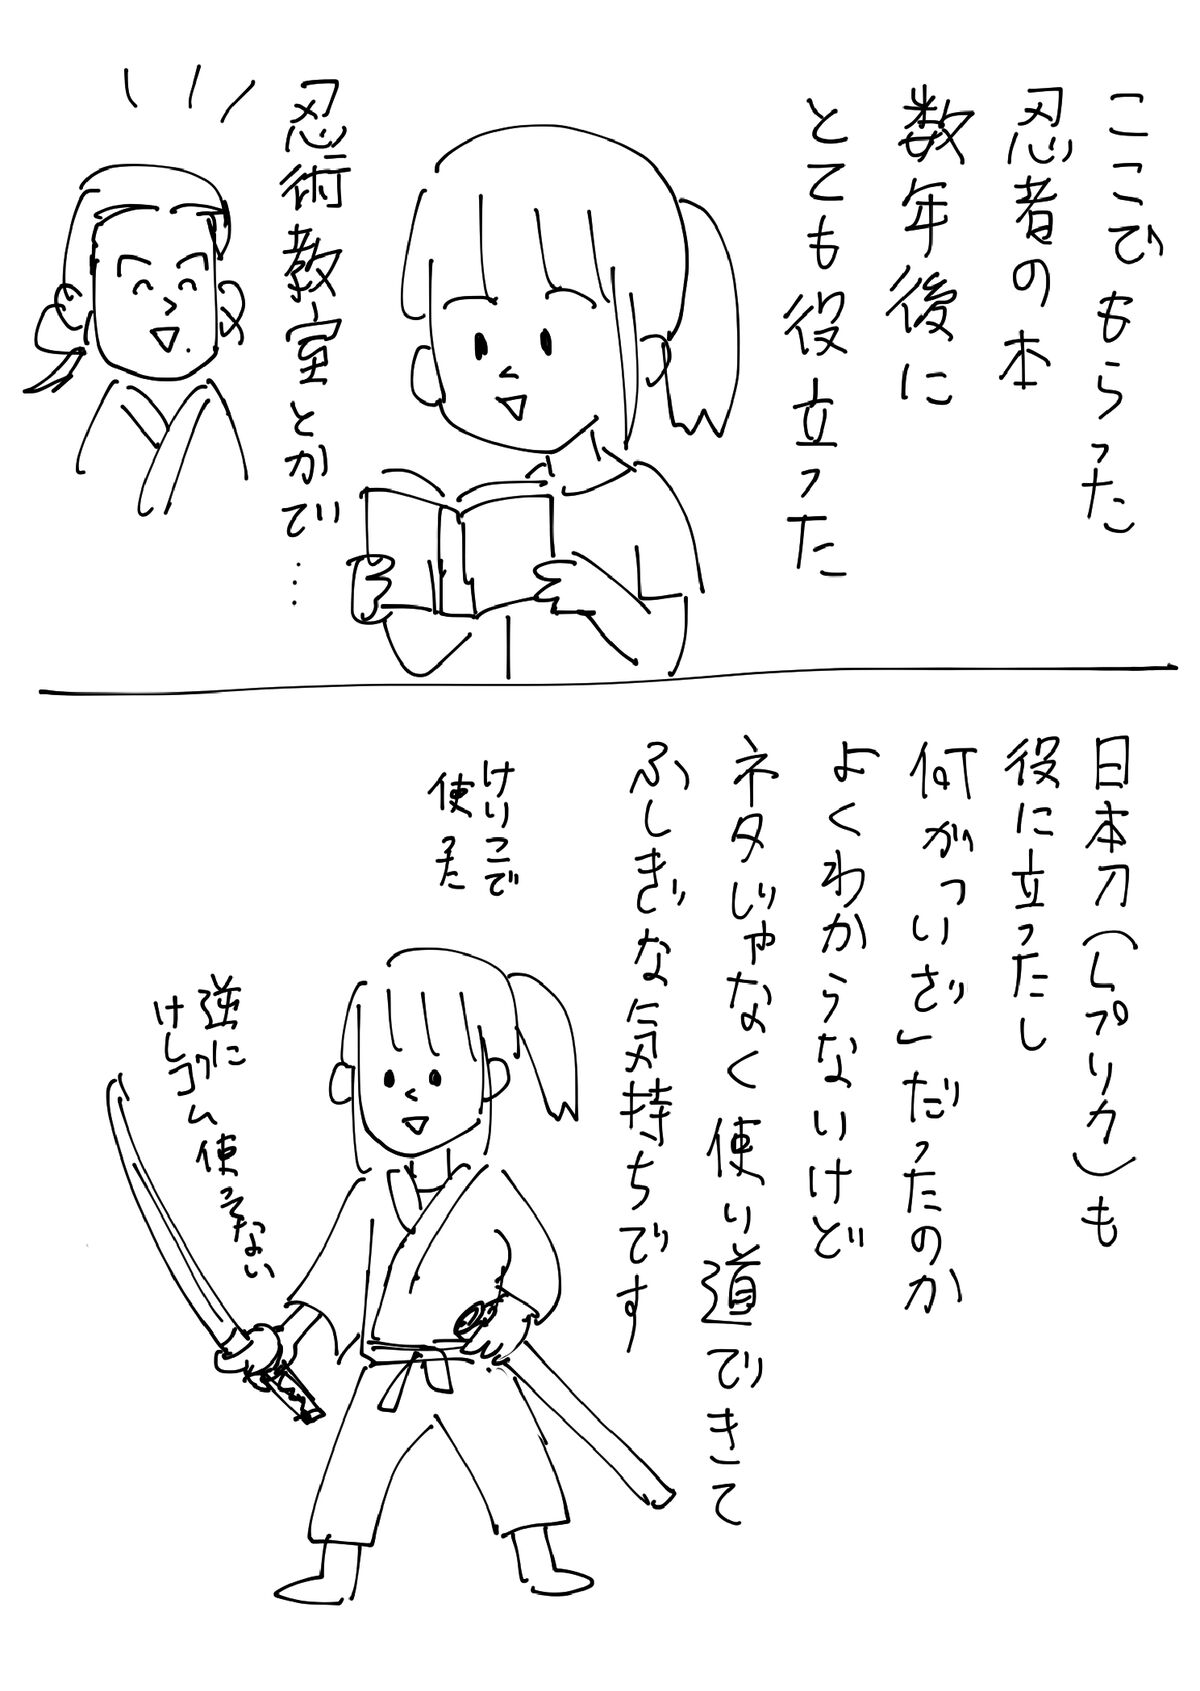 ここでもらった
忍者の本
数年後に
とても役立った
忍術教室とかで…
日本刀(レプリカ)も
役に立ったし
何が「いざ」だったのか
よくわからないけど
ネタじゃなく使い道できて
ふしぎな気持ちです
けいこで
使った
逆に
けしゴム使ってない